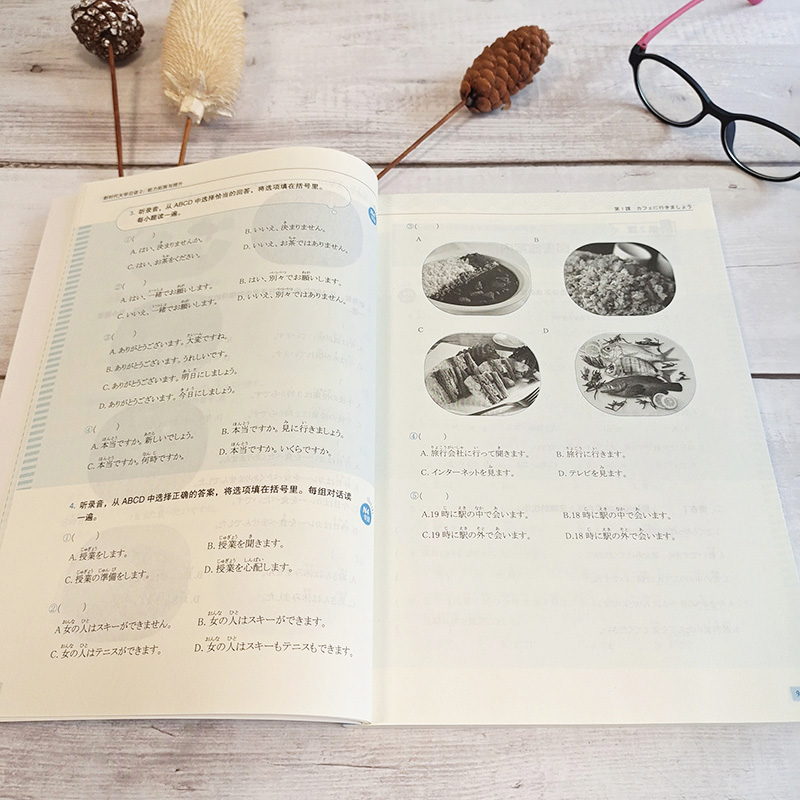 新时代大学日语 2：能力拓展与提升
3. 听录音，从 ABCD 中选择恰当的回答，将选项填在括号里。
每小题读一遍。
①( )
A. はい、決まりませんか。 B. いいえ、決まりません。
C. はい、お茶をください。 D. いいえ、お茶ではありません。
②( )
A. はい、一緒でお願いします。 B. はい、別々でお願いします。
C. いいえ、一緒でお願いします。 D. いいえ、別々ではありません。
③( )
A. ありがとうございます。大変ですね。
B. ありがとうございます。うれしいです。
C. ありがとうございます。明日にしましょう。
D. ありがとうございます。今日にしましょう。
④( )
A. 本当ですか。新しいでしょう。 B. 本当ですか。見に行きましょう。
C. 本当ですか。何時ですか。 D. 本当ですか。いくらですか。
4. 听录音，从 ABCD 中选择正确的答案，将选项填在括号里。每组对话读
一遍。
①( )
A. 授業をします。 B. 授業を聞きます。
C. 授業の準備をします。 D. 授業を心配します。
②( )
A 女の人はスキーができません。 B. 女の人はスキーができます。
C. 女の人はテニスができます。 D. 女の人はスキーもテニスもできます。
第1課 カフェに行きましょう
③( )
A B
C D
④( )
A. 旅行会社に行って聞きます。 B. 旅行に行きます。
C. インターネットを見ます。 D. テレビを見ます。
⑤( )
A.19 時に駅の中で会います。 B.18 時に駅の中で会います。
C.19 時に駅の外で会います。 D.18 時に駅の外で会います。